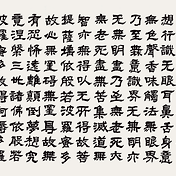 想行識無眼耳鼻舌身意
無色聲香味觸法無眼界
乃至無意識界無無明亦
无無明盡乃至無老死亦
無老死盡無苦集滅道無
智亦無得以無所得故菩
提薩埵依般若波羅蜜多
故心無罣礙無罣礙故無
有恐怖遠離顛倒夢想究
竟涅槃三世諸佛依般若
波羅蜜多故得阿耨多羅